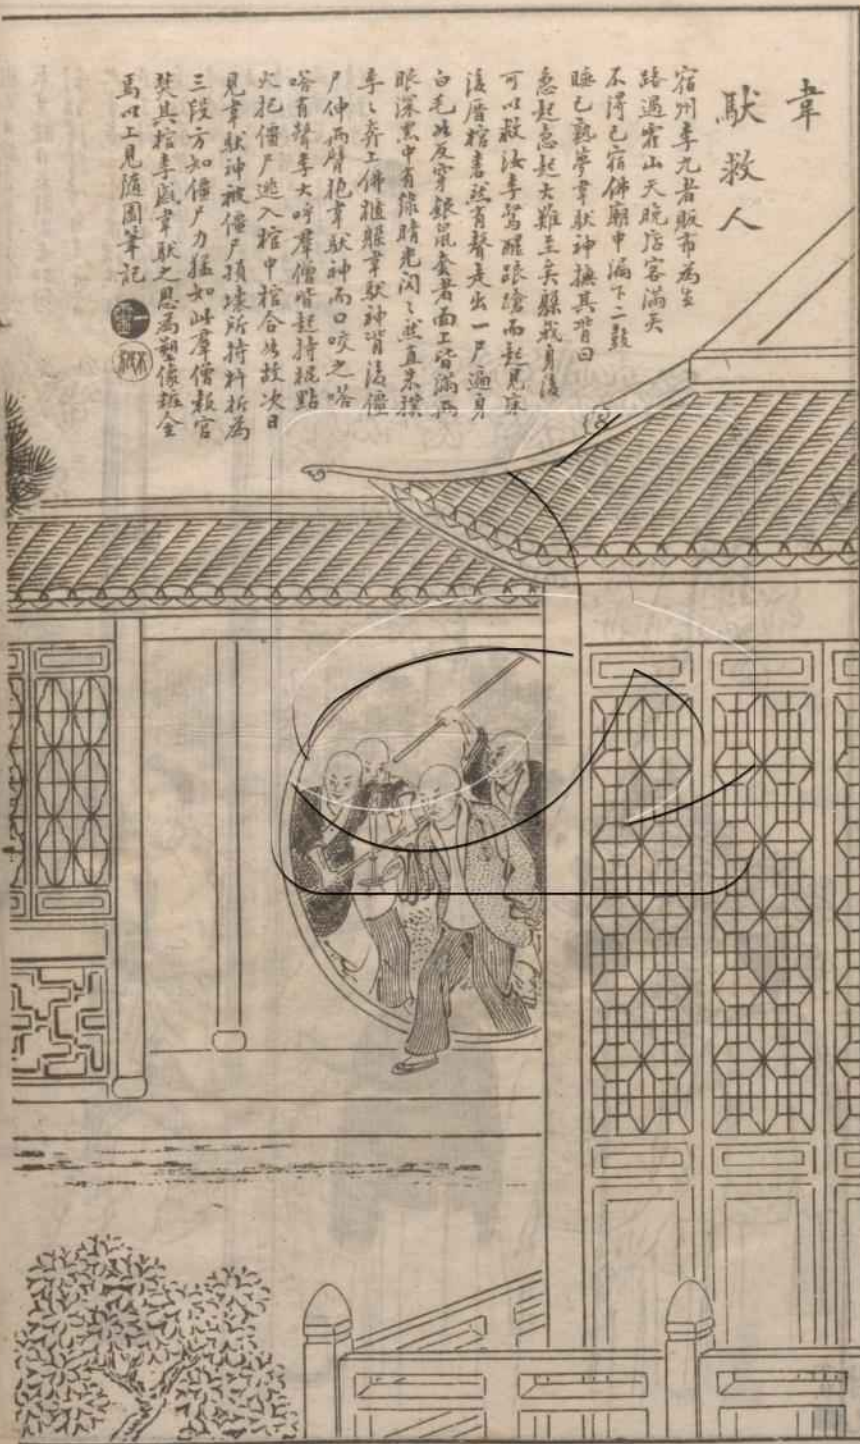 韋
馱救人
宿州李九者販布為生
路過霍山天晚店客滿矣
不得已宿佛廟中漏下二鼓
睡已熟夢韋馱神撫其背曰
急起急起大難至矣躲我身後
可以救汝李驚醒踉蹌而起見床
後厝棺砉然有聲走出一尸遍身
白毛如反穿銀鼠套者面上皆滿兩
眼深黑中有綠睛光閃〻然直來撲
李〻奔上佛櫃躲韋馱神背後僵
尸伸兩臂抱韋馱神而口咬之嗒
嗒有聲李大呼羣僧皆起持棍點
火把僵尸逃入棺中棺合如故次日
見韋馱神被僵尸損壞所持杵折為
三段方知僵尸力猛如此羣僧報官
焚其棺李感韋馱之恩為塑像裝金
焉以上見隨園筆記